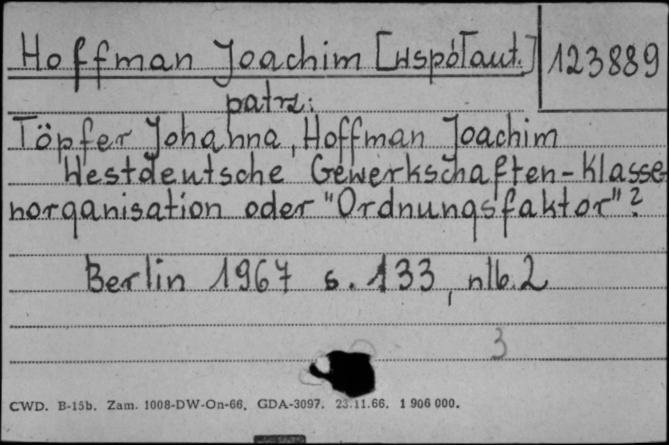 Hoffman Joachim [Współaut.] 123889
patrz:
Töpfer Johanna, Hoffman Joachim
Westdeutsche Gewerkschaften-Klasse-
norganisation oder "Ordnungsfaktor"?
Berlin 1967 s. 133, nlb. 2
3
CWD. B-15b. Zam. 1008-DW-On-66. GDA-3097. 23.11.66. 1 906 000.